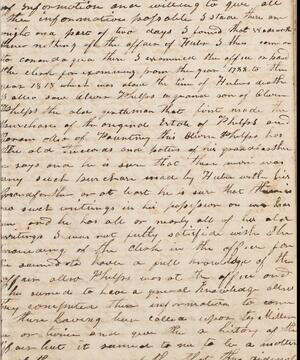 of Information and willing to give all
the information possable I staid there one
night and a part of two days I found that
there nothing of the affair of Huber I then came on
to canandagua there I examined the office or paid
the clerk for examining from the year 1788 to the
year 1818 which was about the time of Hubers death
I also saw Oliver Phelps a grand son of Oliver
Phelps the old gentleman that first made the
purchase of the original Estate of Phelps and
Gorham also of this Oliver Phelps has
the old records and papers of his grandfather
says and he is sure that there never was
any such purchase made by Huber with his
Grandfather or at least he is sure that there is
no such writings in his possession or on Rec
and he has all or nearly all of his old
writings I was not fully satisfied with the
of the clerk in the office for
he seamed to have a full knowledge of the
affair also Phelps was at the office and
he seamed to have a general knowledge also
they computed their information to come
from there having been called upon by Miller
times and give the a history of the
affair but it seamed to me to be a
that